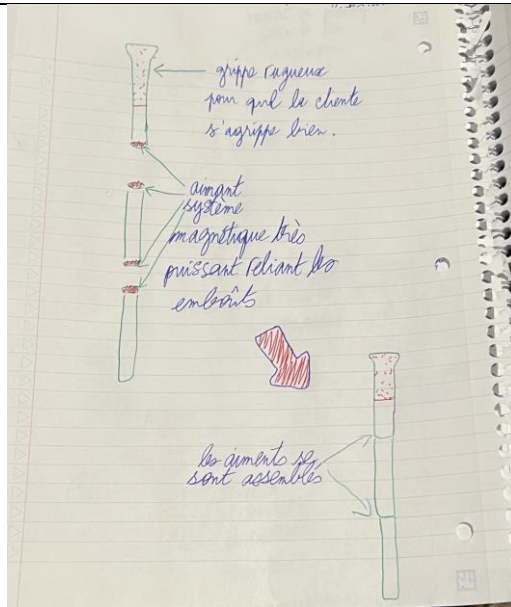 grippe rugueux
pour que la cliente
s'agrippe bien.
aimant
système
magnétique très
puissant reliant les
embouts
les aiments se
sont assemblés